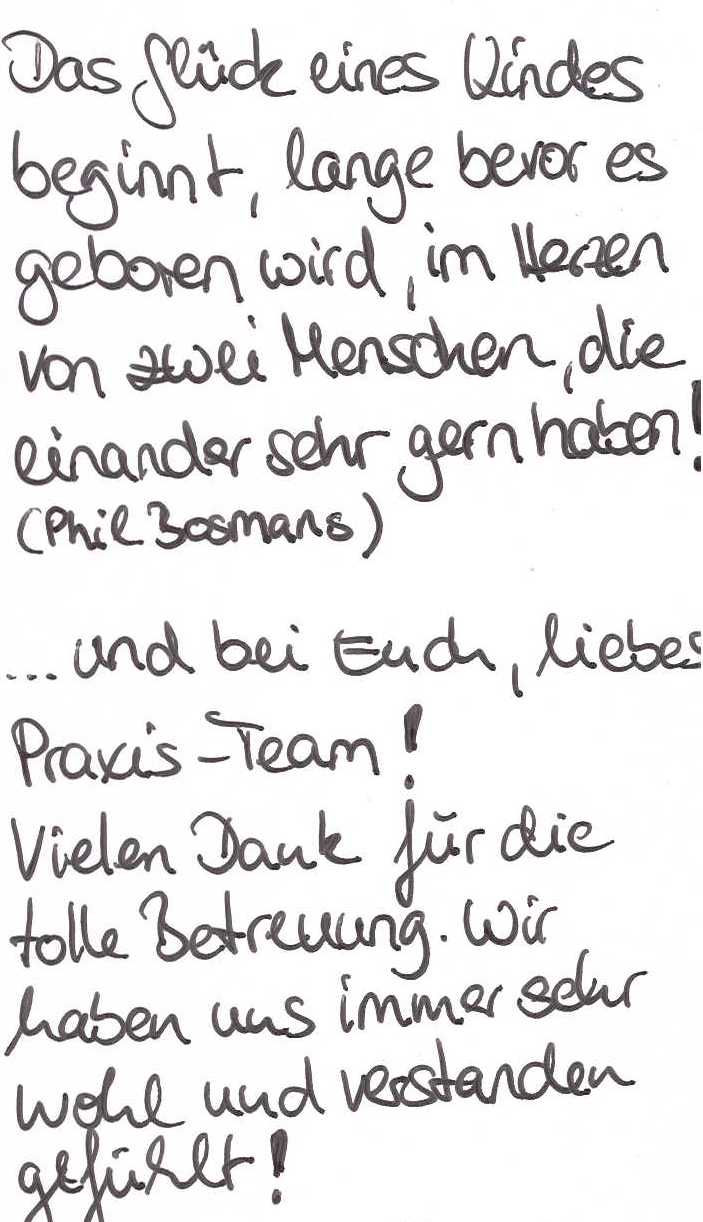 Das Glück eines Kindes
beginnt, lange bevor es
geboren wird, im Herzen
von zwei Menschen, die
einander sehr gern haben!
(Phil Bosmans)
... und bei Euch, liebes
Praxis-Team!
Vielen Dank für die
tolle Betreuung. Wir
haben uns immer sehr
wohl und verstanden
gefühlt!